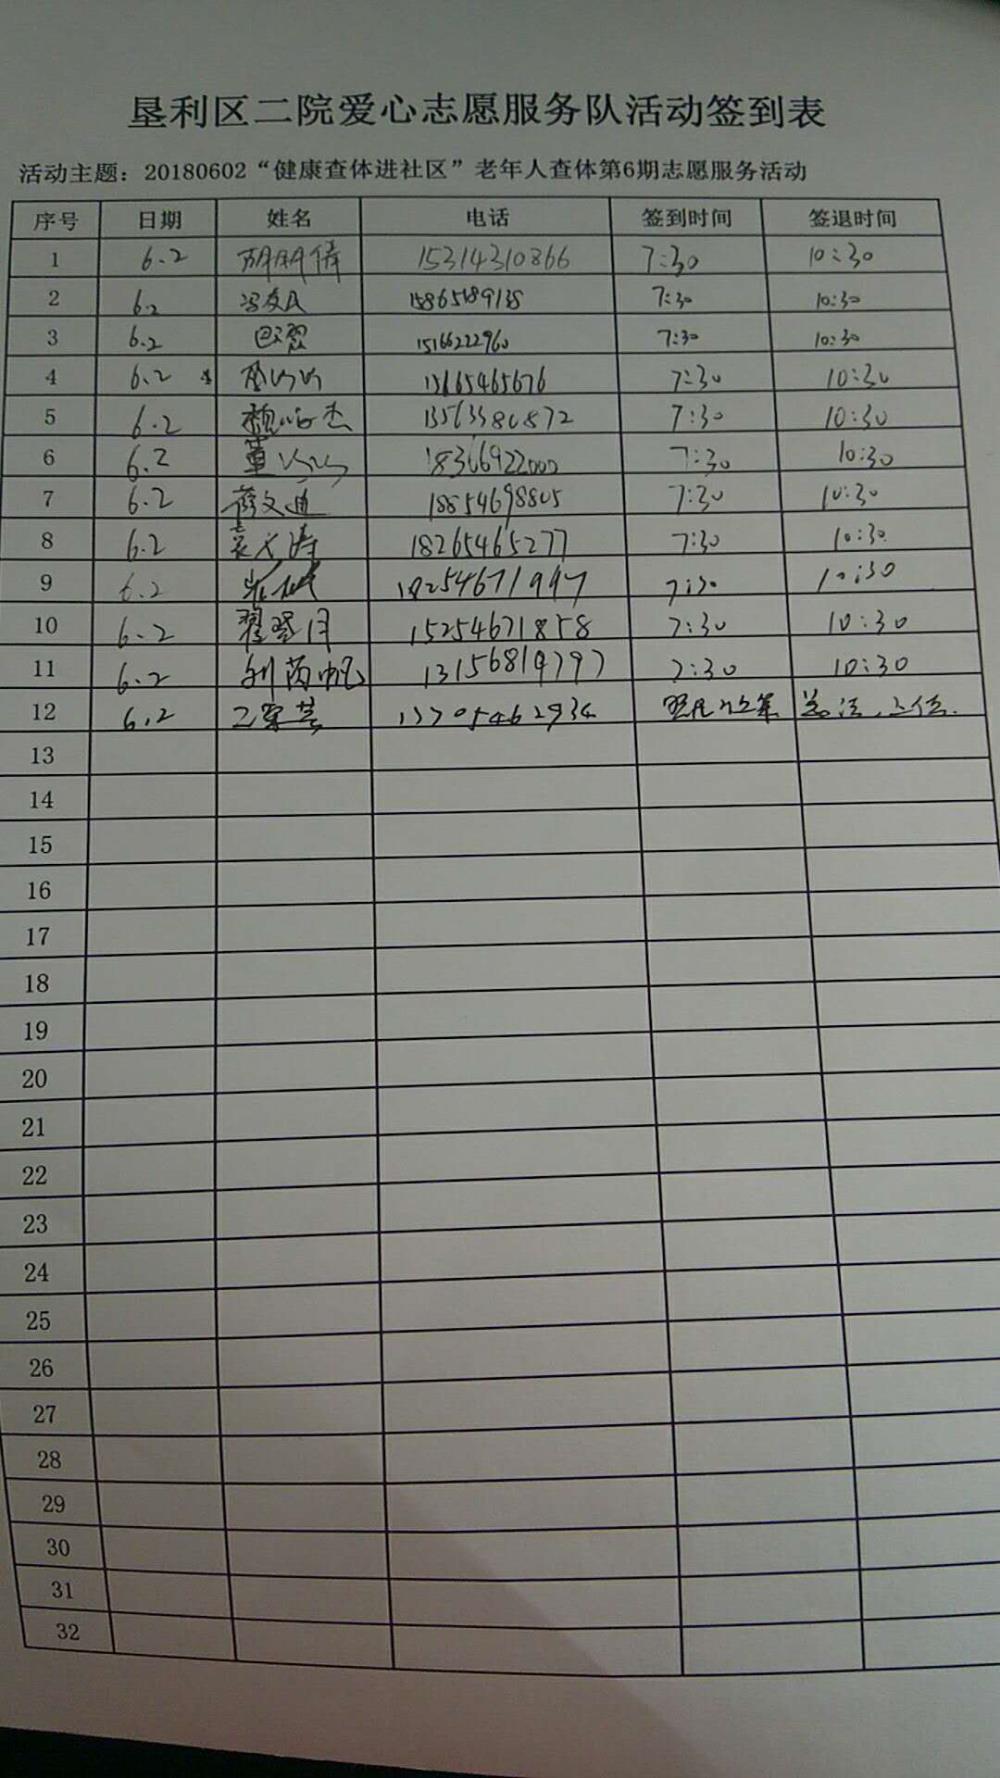 垦利区二院爱心志愿服务队活动签到表
活动主题：20180602“健康查体进社区”老年人查体第6期志愿服务活动
序号 日期 姓名 电话 签到时间 签退时间
1 6.2 胡明倩 15314310866 7:30 10:30
2 6.2 冯友民 15865189138 7:30 10:30
3 6.2 15166222960 7:30 10:30
4 6.2 13165465676 7:30 10:30
5 6.2 7:30 10:30
6 6.2 董 18366922000 7:30 10:30
7 6.2 蒋文迪 18854698805 7:30 10:30
8 6.2 袁文涛 18265465277 7:30 10:30
9 6.2 7:30 10:30
10 6.2 翟翠月 15254671858 7:30 10:30
11 6.2 13156819797 7:30 10:30
12 6.2 13705462934
13
14
15
16
17
18
19
20
21
22
23
24
25
26
27
28
29
30
31
32